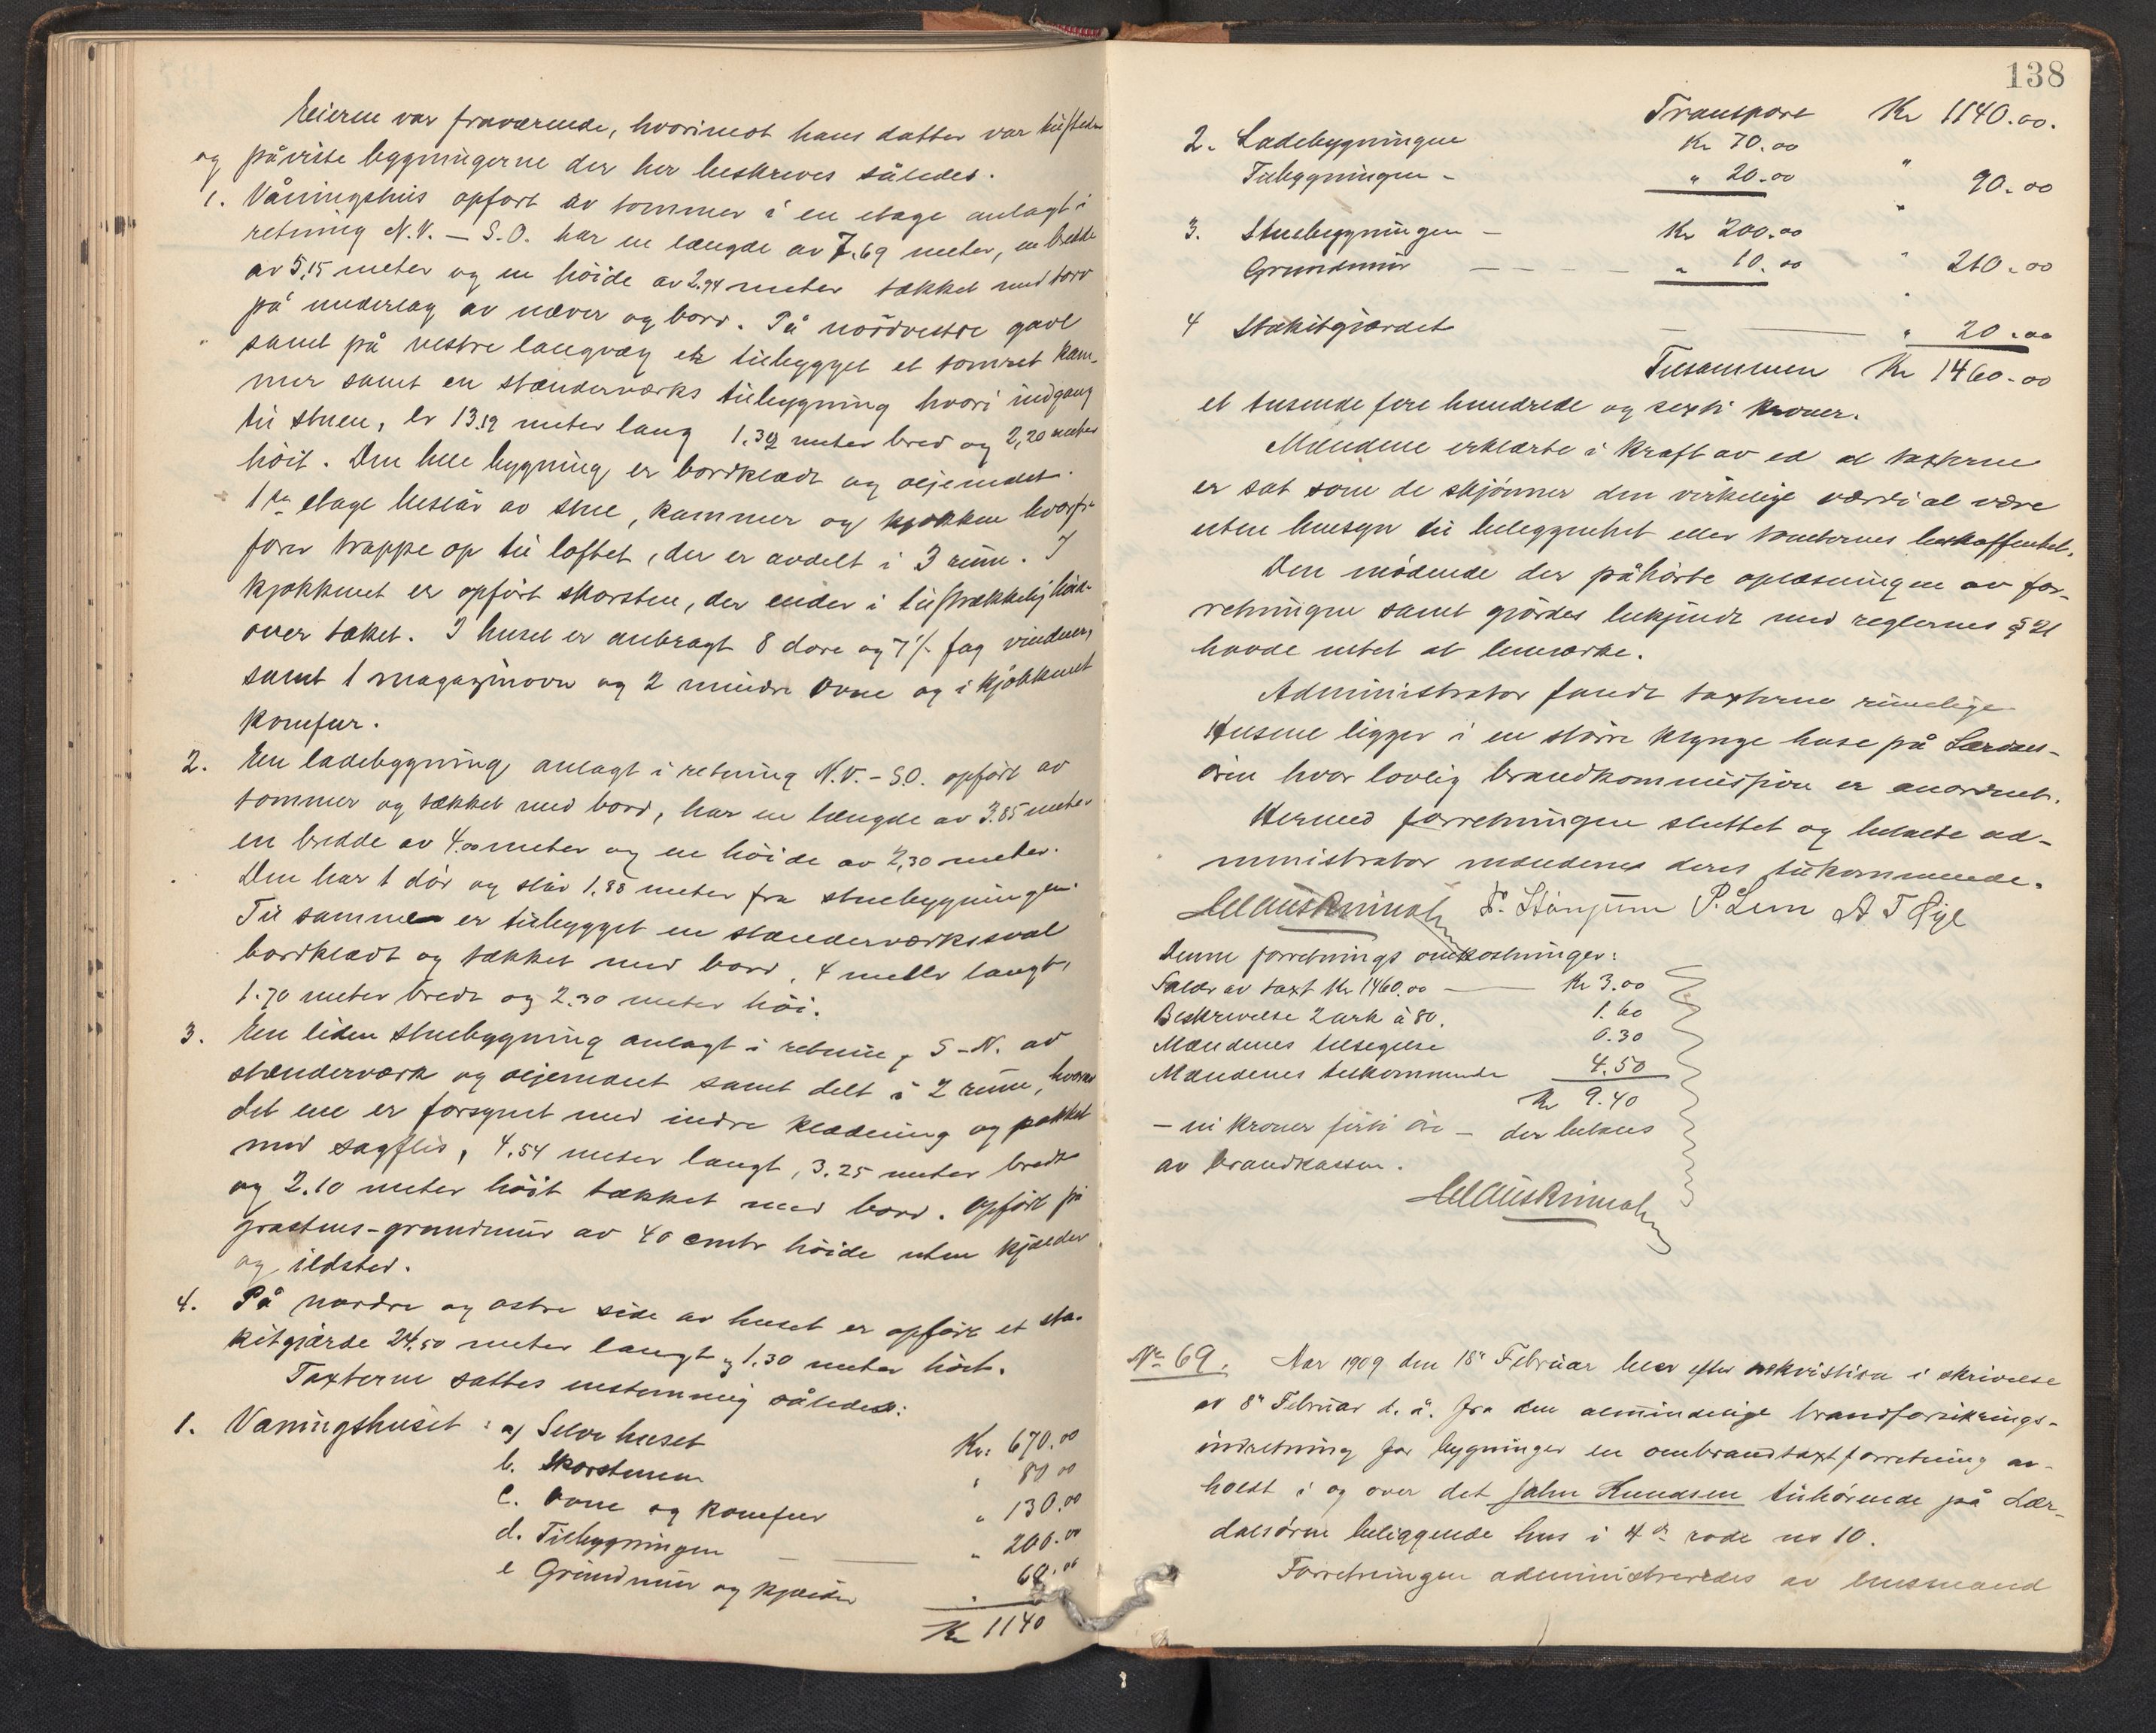 Eieren var fraværende, hvorimot hans datter var tilstede
og påviste bygningerne der her beskrives således.
1. Våningshus opført av tømmer i en etage anlagt i
retning N.V. – S.O. har en længde av 7.69 meter, en bredde
av 5.15 meter og en höide av 2.94 meter tækket med torv
på underlag av næver og bord. På nordvestre gavl
samt på vestre langvæg er tilbygget et tomret kam-
mer samt en stænderværks tilbygning hvori indgang
til stuen, er 13.19 meter lang 1.39 meter bred og 2,20 meter
höit. Den hele bygning er bordklædt og oljemalt.
1ste etage består av stue, kammer og kjøkken hvorfra
fører trappe op til loftet, der er avdelt i 3 rum. I
kjøkkenet er opført skorsten, der ender i tilstrækkelig höide
over taket. I huset er anbragt 8 døre og 7½ fag vinduer,
samt 1 magazinovn og 2 mindre ovne og i kjökkenet
komfur.
2. En ladebygning anlagt i retning N.V. – S.O. opført av
tømmer og tækket med bord, har en længde av 3.85 meter
en bredde av 4.00 meter og en höide av 2,30 meter.
Den har 1 dör og står 1.88 meter fra stuebygningen.
Til sammen er tilbygget en stænderværkssval
bordklædt og tækket med bord, 4 meter langt,
1.70 meter bredt og 2.30 meter höi.
3. En liden stuebygning anlagt i retning S – N. av
stænderværk og oljemalet samt delt i 2 rum, hvorav
det ene er forsynet med indre klædning og pakket
med sagflis, 4.54 meter langt, 3.25 meter bredt
og 2.10 meter höit tækket med bord. Opført på
gråstens-grundmur av 40 cmtr höide uten kjælder
og ildsted.
4. På nordre og østre side av huset er opført et sta-
kitgjærde 24.50 meter langt og 1.30 meter höit.
Taxterne sattes enstemmig således:
1. Vaningshuset : a) Selve huset Kr: 670.00
b. Skorstenen " 80 00
c. Ovne og komfur " 130.00
d. Tilbygningen — " 200.00
e Grundmur og kjælder " 60.00
Kr 1140
138
Transport Kr 1140.00.
2. Ladebygningen Kr 70.00
Tilbygningen - " 20.00 " 90.00
3. Stuebygningen – Kr 200.00
Grundmur – – – – " 10.00 " 210.00
4 Stakitgjærdet — — " 20.00
Tilsammen Kr 1460.00
et tusende fire hundrede og sexti kroner.
Mændene erklærte i kraft av ed at taxterne
er sat som de skjönner den virkelige værdi at være
uten hensyn til beliggenhet eller tomternes beskaffenhet.
Den mødende der påhörte oplæsningen av for-
retningen samt gjördes bekjendt med reglernes § 21
havde intet at bemærke.
Administrator fandt taxterne rimelige
Husene ligger i en större klynge huse på Lærdals-
ören hvor lovlig brandkommission er anordnet.
Hermed forretningen sluttet og betalte ad-
ministrator mændenes deres tilkommende.
P. Lem
Denne forretnings omkostninger:
Salær av taxt Kr 1460.00 — Kr 3.00
Beskrivelse 2 ark à 80. 1.60
Mændenes tilsigelse 0.30
Mændenes tilkommende 4.50
Kr 9.40
– ni kroner förti öre – der betales
av brandkassen.
No 69. Aar 1909 den 18de Februar blev efter rekvisition i skrivelse
av 8de Februar d. å. fra den almindelige brandforsikrings-
indretning for bygninger en ombrandtaxtforretning av-
holdt i og over det John Knudsen tilhörende på Lær-
dalsören beliggende hus i 4de rode no 10.
Forretningen administreredes av lensmand